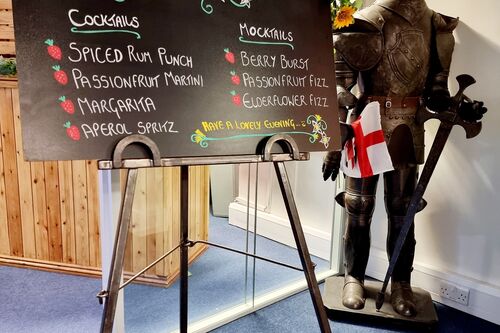 Cocktails
Spiced Rum Punch
Passionfruit Martini
Margarita
Aperol Spritz
Mocktails
Berry Burst
Passionfruit Fizz
Elderflower Fizz
Have a lovely evening...